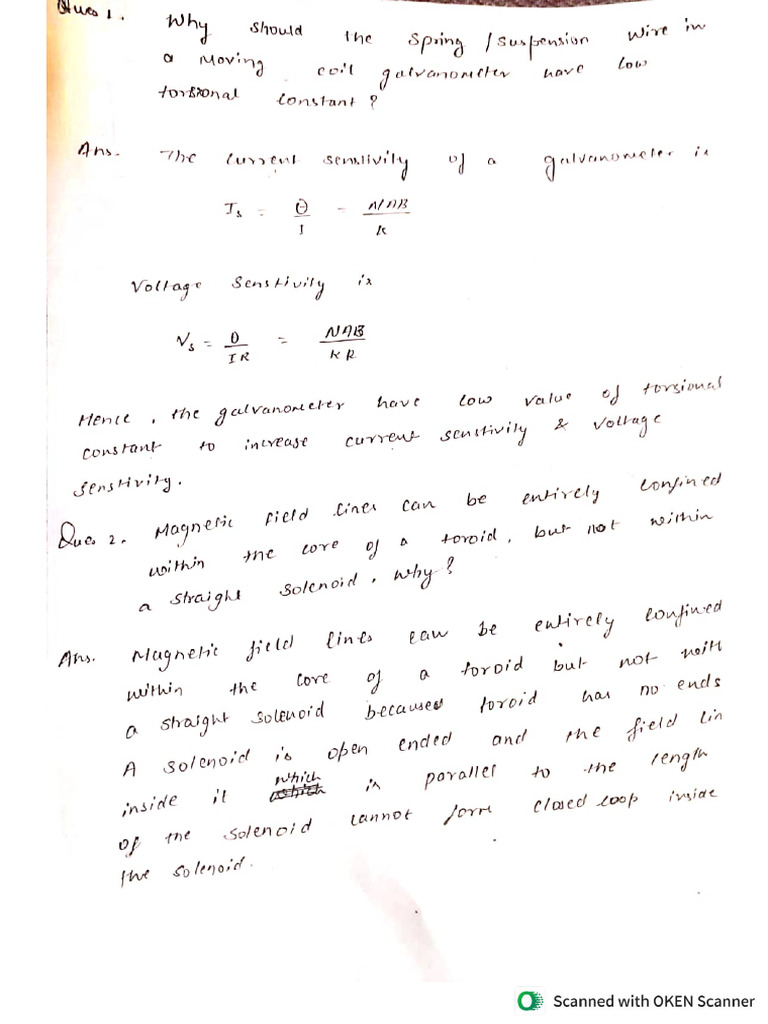 Ques 1. Why should the spring / suspension wire in
a moving coil galvanometer have low
torsional constant?
Ans. The current senstivity of a galvanometer is
Is = θ/I = NAB/K
Voltage senstivity is
Vs = θ/IR = NAB/KR
Hence, the galvanometer have low value of torsional
constant to increase current senstivity & voltage
senstivity.
Ques 2. Magnetic field lines can be entirely confined
within the core of a toroid, but not within
a straight solenoid. Why?
Ans. Magnetic field lines can be entirely confined
within the core of a toroid but not with
a straight solenoid because toroid has no ends
A solenoid is open ended and the field lin
inside it which is parallel to the length
of the solenoid cannot form closed loop inside
the solenoid.
Scanned with OKEN Scanner